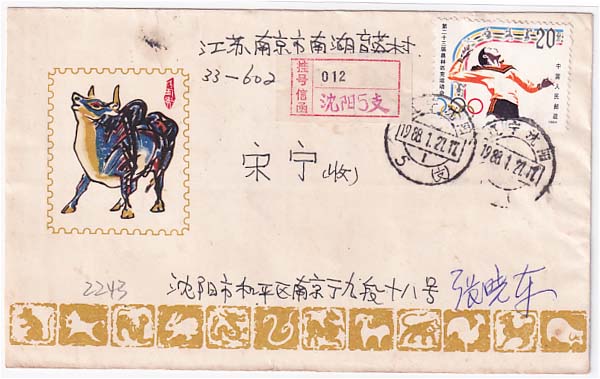 江苏南京市南湖育英村
33-602
挂号信函
012
沈阳5支
第二十三届奥林匹克运动会
20分
中国人民邮政
1984
辽宁沈阳
1988.1.27.17
5(支)
辽宁沈阳
1988.1.27.17
宋宁(收)
2243
沈阳市和平区南京
十八号
张晓东